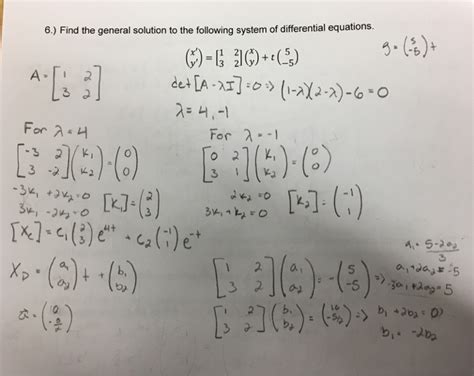 6.) Find the general solution to the following system of differential equations.
(x' y') = [1 2 3 2](x y) + t(5 -5)
g = (5 -5)t
A = [1 2 3 2]
det[A - λI] = 0 => (1-λ)(2-λ)-6=0
λ = 4, -1
For λ = 4
For λ = -1
[-3 2 3 -2](k₁ k₂) = (0 0)
[0 2 3 1](k₁ k₂) = (0 0)
-3k₁ + 2k₂ = 0
3k₁ - 2k₂ = 0
[k₁] = (2 3)
2k₂ = 0
3k₁ + k₂ = 0
[k₂] = (-1 1)
[Xc] = c₁(2 3)e⁴ᵗ + c₂(-1 1)e⁻ᵗ
a₁ = 5-2a₂ 3
Xp = (a₁ a₂)t + (b₁ b₂)
[1 2 3 2](a₁ a₂) = -(5 -5) =>
a₁ + 2a₂ = -5
3a₁ + 2a₂ = 5
[1 2 3 2](b₁ b₂) =
=> b₁ + 2b₂ = 0
b₁ = -2b₂